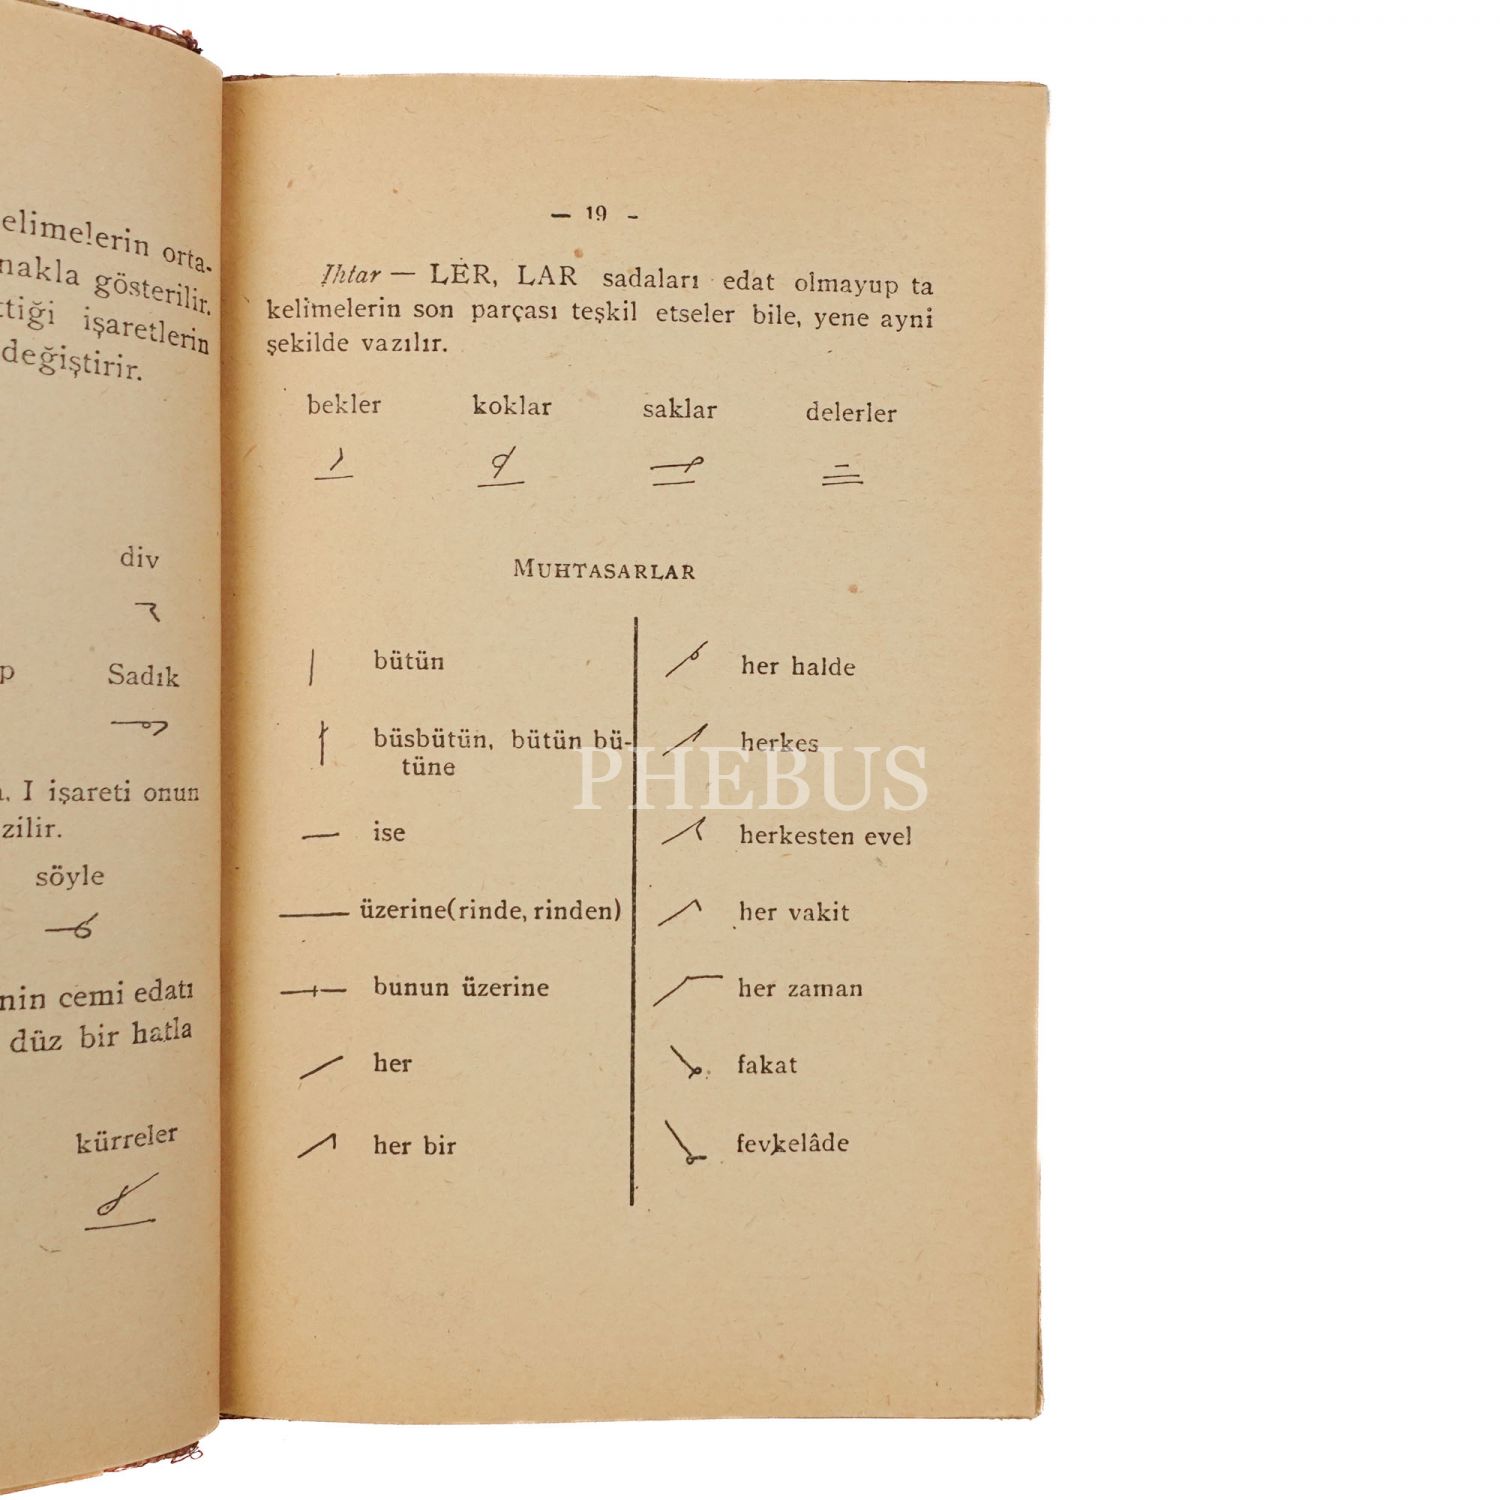 elimelerin orta-
nakla gösterilir.
ttiği işaretlerin
değiştirir.
div
p Sadık
a. I işareti onun
zilir.
söyle
nin cemi edatı
düz bir hatla
kürreler
— 19 -
Ihtar — LER, LAR sadaları edat olmayup ta
kelimelerin son parçası teşkil etseler bile, yene ayni
şekilde vazılır.
bekler koklar saklar delerler
MUHTASARLAR
bütün
büsbütün, bütün bü-
tüne
ise
üzerine(rinde, rinden)
bunun üzerine
her
her bir
her halde
herkes
herkesten evel
her vakit
her zaman
fakat
fevkelâde
PHEBUS